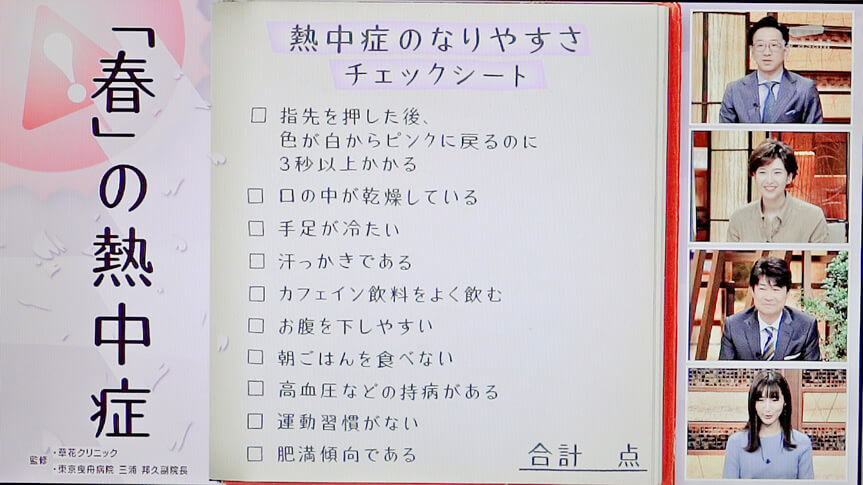 「春」の熱中症
監修
・草花クリニック
・東京曳舟病院 三浦 邦久副院長
熱中症のなりやすさ
チェックシート
□ 指先を押した後、
色が白からピンクに戻るのに
3秒以上かかる
□ 口の中が乾燥している
□ 手足が冷たい
□ 汗っかきである
□ カフェイン飲料をよく飲む
□ お腹を下しやすい
□ 朝ごはんを食べない
□ 高血圧などの持病がある
□ 運動習慣がない
□ 肥満傾向である
合計 点